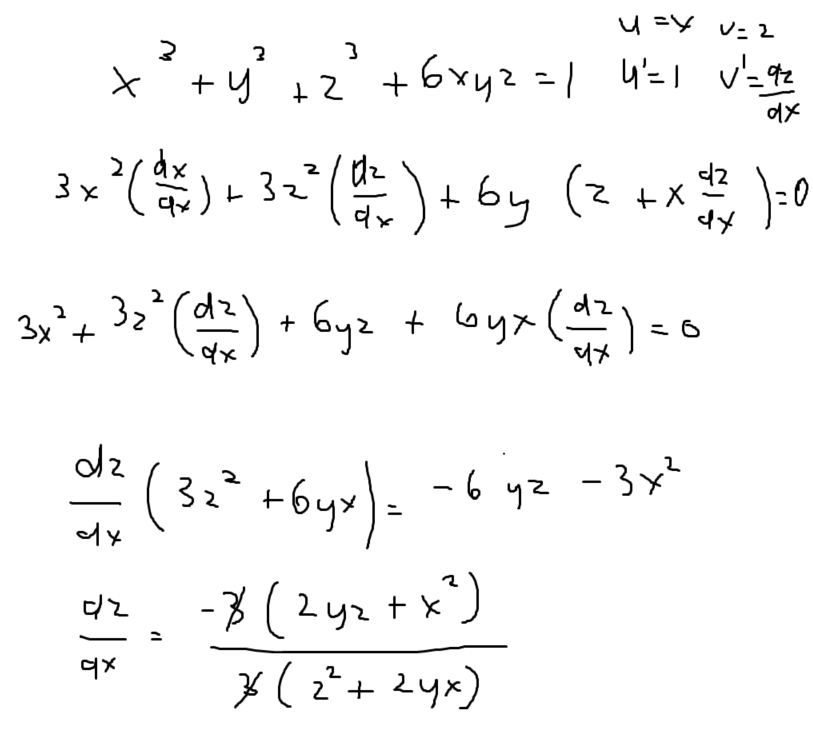 u = x  v = z
x³ + y³ + z³ + 6xyz = 1  u' = 1  v' = dz/dx
3x² (dx/dx) + 3z² (dz/dx) + 6y (z + x dz/dx) = 0
3x² + 3z² (dz/dx) + 6yz + 6yx (dz/dx) = 0
dz/dx (3z² + 6yx) = -6yz - 3x²
dz/dx = -3(2yz + x²) / 3(z² + 2yx)